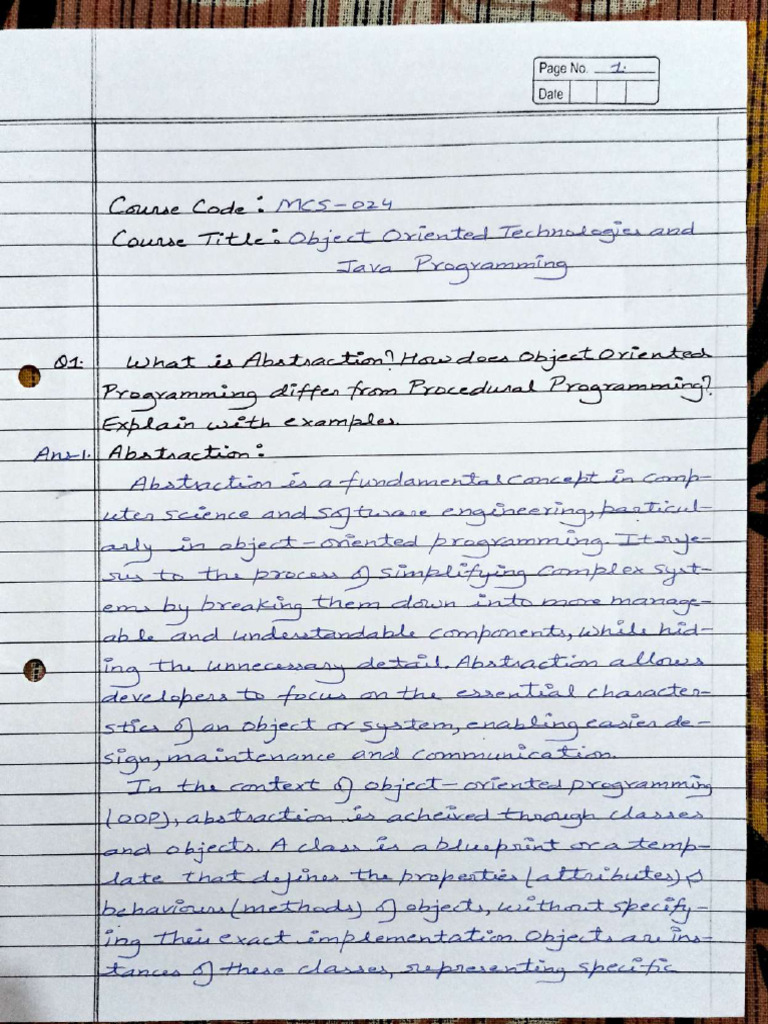 Page No. 1.
Date
Course Code: MCS-024
Course Title: Object Oriented Technologies and
Java Programming
Q1. What is Abstraction? How does Object Oriented
Programming differ from Procedural Programming?
Explain with examples.
Ans1. Abstraction:
Abstraction is a fundamental concept in comp-
uter science and software engineering, particul-
arly in object-oriented programming. It refe-
rs to the process of simplifying complex syst-
ems by breaking them down into more manage-
able and understandable components, while hid-
ing the unnecessary detail. Abstraction allows
developers to focus on the essential character-
stics of an object or system, enabling easier de-
sign, maintenance and communication.
In the context of object-oriented programming
(OOP), abstraction is acheived through classes
and objects. A class is a blueprint or a temp-
late that defines the properties (attributes) &
behaviours (methods) of objects, without specify-
ing their exact implementation. Objects are ins-
tances of these classes, representing specific